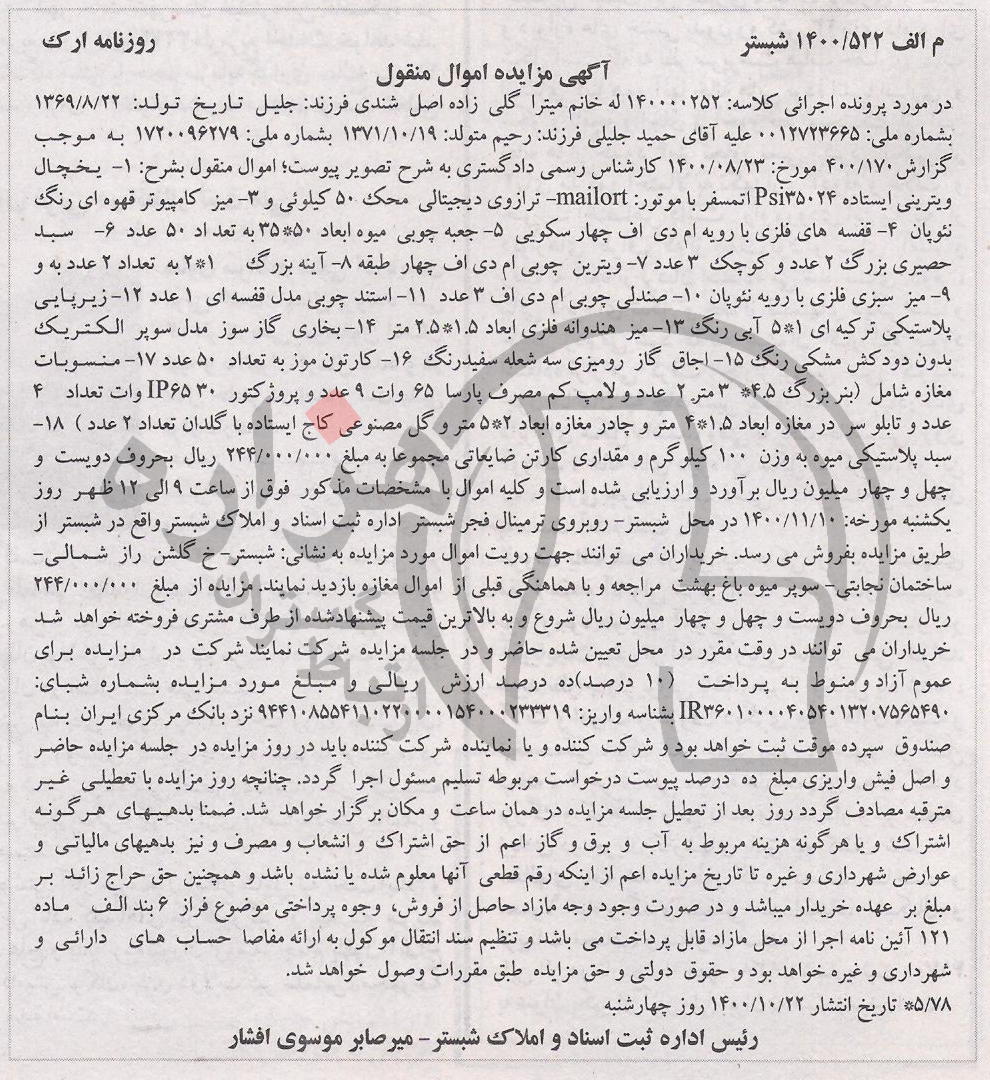 م الف ۱۴۰۰/۵۲۲ شبستر
روزنامه ارک
آگهی مزایده اموال منقول
در مورد پرونده اجرائی کلاسه: ۱۴۰۰۰۰۲۵۲ له خانم میترا گلی زاده اصل شندی فرزند: جلیل تاریخ تولد: ۱۳۶۹/۸/۲۲
بشماره ملی: ۰۰۱۲۷۲۳۶۶۵ علیه آقای حمید جلیلی فرزند: رحیم متولد: ۱۳۷۱/۱۰/۱۹ بشماره ملی: ۱۷۲۰۰۹۶۲۷۹ به موجب
گزارش ۴۰۰/۱۷۰ مورخ: ۱۴۰۰/۰۸/۲۳ کارشناس رسمی دادگستری به شرح تصویر پیوست؛ اموال منقول بشرح: ۱- یخچال
ویترینی ایستاده Psi۳۵۰۲۴ اتمسفر با موتور: mailort- ترازوی دیجیتالی محک ۵۰ کیلوئی و ۳- میز کامپیوتر قهوه ای رنگ
نئوپان ۴- قفسه های فلزی با رویه ام دی اف چهار سکویی ۵- جعبه چوبی میوه ابعاد ۵۰*۳۵ به تعداد ۵۰ عدد ۶- سبد
حصیری بزرگ ۲ عدد و کوچک ۳ عدد ۷- ویترین چوبی ام دی اف چهار طبقه ۸- آینه بزرگ ۱*۲ به تعداد ۲ عدد به و
۹- میز سبزی فلزی با رویه نئوپان ۱۰- صندلی چوبی ام دی اف ۳ عدد ۱۱- استند چوبی مدل قفسه ای ۱ عدد ۱۲- زیرپایی
پلاستیکی ترکیه ای ۱*۵ آبی رنگ ۱۳- میز هندوانه فلزی ابعاد ۱.۵*۲.۵ متر ۱۴- بخاری گاز سوز مدل سوپر الکتریک
بدون دودکش مشکی رنگ ۱۵- اجاق گاز رومیزی سه شعله سفیدرنگ ۱۶- کارتون موز به تعداد ۵۰ عدد ۱۷- منسوبات
مغازه شامل (بنر بزرگ ۴.۵* ۳ متر ۲ عدد و لامپ کم مصرف پارسا ۶۵ وات ۹ عدد و پروژکتور IP۶۵ ۳۰ وات تعداد ۴
عدد و تابلو سر در مغازه ابعاد ۱.۵*۴ متر و چادر مغازه ابعاد ۲*۵ متر و گل مصنوعی کاج ایستاده با گلدان تعداد ۲ عدد ) ۱۸-
سبد پلاستیکی میوه به وزن ۱۰۰ کیلوگرم و مقداری کارتن ضایعاتی مجموعا به مبلغ ۲۴۴/۰۰۰/۰۰۰ ریال بحروف دویست و
چهل و چهار میلیون ریال برآورد و ارزیابی شده است و کلیه اموال با مشخصات مذکور فوق از ساعت ۹ الی ۱۲ ظهر روز
یکشنبه مورخه: ۱۴۰۰/۱۱/۱۰ در محل شبستر- روبروی ترمینال فجر شبستر اداره ثبت اسناد و املاک شبستر واقع در شبستر از
طریق مزایده بفروش می رسد. خریداران می توانند جهت رویت اموال مورد مزایده به نشانی: شبستر- خ گلشن راز شمالی-
ساختمان نجابتی- سوپر میوه باغ بهشت مراجعه و با هماهنگی قبلی از اموال مغازه بازدید نمایند. مزایده از مبلغ ۲۴۴/۰۰۰/۰۰۰
ریال بحروف دویست و چهل و چهار میلیون ریال شروع و به بالاترین قیمت پیشنهادشده از طرف مشتری فروخته خواهد شد
خریداران می توانند در وقت مقرر در محل تعیین شده حاضر و در جلسه مزایده شرکت نمایند شرکت در مزایده برای
عموم آزاد و منوط به پرداخت (۱۰ درصد)ده درصد ارزش ریالی و مبلغ مورد مزایده بشماره شبای:
IR۳۶۰۱۰۰۰۰۴۰۵۴۰۱۳۲۰۷۵۶۵۴۹۰ بشناسه واریز: ۹۴۴۱۰۸۵۵۴۱۱۰۲۲۰۰۰۰۱۵۴۰۰۰۲۳۳۳۱۹ نزد بانک مرکزی ایران بنام
صندوق سپرده موقت ثبت خواهد بود و شرکت کننده و یا نماینده شرکت کننده باید در روز مزایده در جلسه مزایده حاضر
و اصل فیش واریزی مبلغ ده درصد پیوست درخواست مربوطه تسلیم مسئول اجرا گردد. چنانچه روز مزایده با تعطیلی غیر
مترقبه مصادف گردد روز بعد از تعطیل جلسه مزایده در همان ساعت و مکان برگزار خواهد شد. ضمنا بدهیهای هرگونه
اشتراک و یا هرگونه هزینه مربوط به آب و برق و گاز اعم از حق اشتراک و انشعاب و مصرف و نیز بدهیهای مالیاتی و
عوارض شهرداری و غیره تا تاریخ مزایده اعم از اینکه رقم قطعی آنها معلوم شده یا نشده باشد و همچنین حق حراج زائد بر
مبلغ بر عهده خریدار میباشد و در صورت وجود وجه مازاد حاصل از فروش، وجوه پرداختی موضوع فراز ۶ بند الف ماده
۱۲۱ آئین نامه اجرا از محل مازاد قابل پرداخت می باشد و تنظیم سند انتقال موکول به ارائه مفاصا حساب های دارائی و
شهرداری و غیره خواهد بود و حقوق دولتی و حق مزایده طبق مقررات وصول خواهد شد.
۵/۷۸* تاریخ انتشار ۱۴۰۰/۱۰/۲۲ روز چهارشنبه
رئیس اداره ثبت اسناد و املاک شبستر- میرصابر موسوی افشار